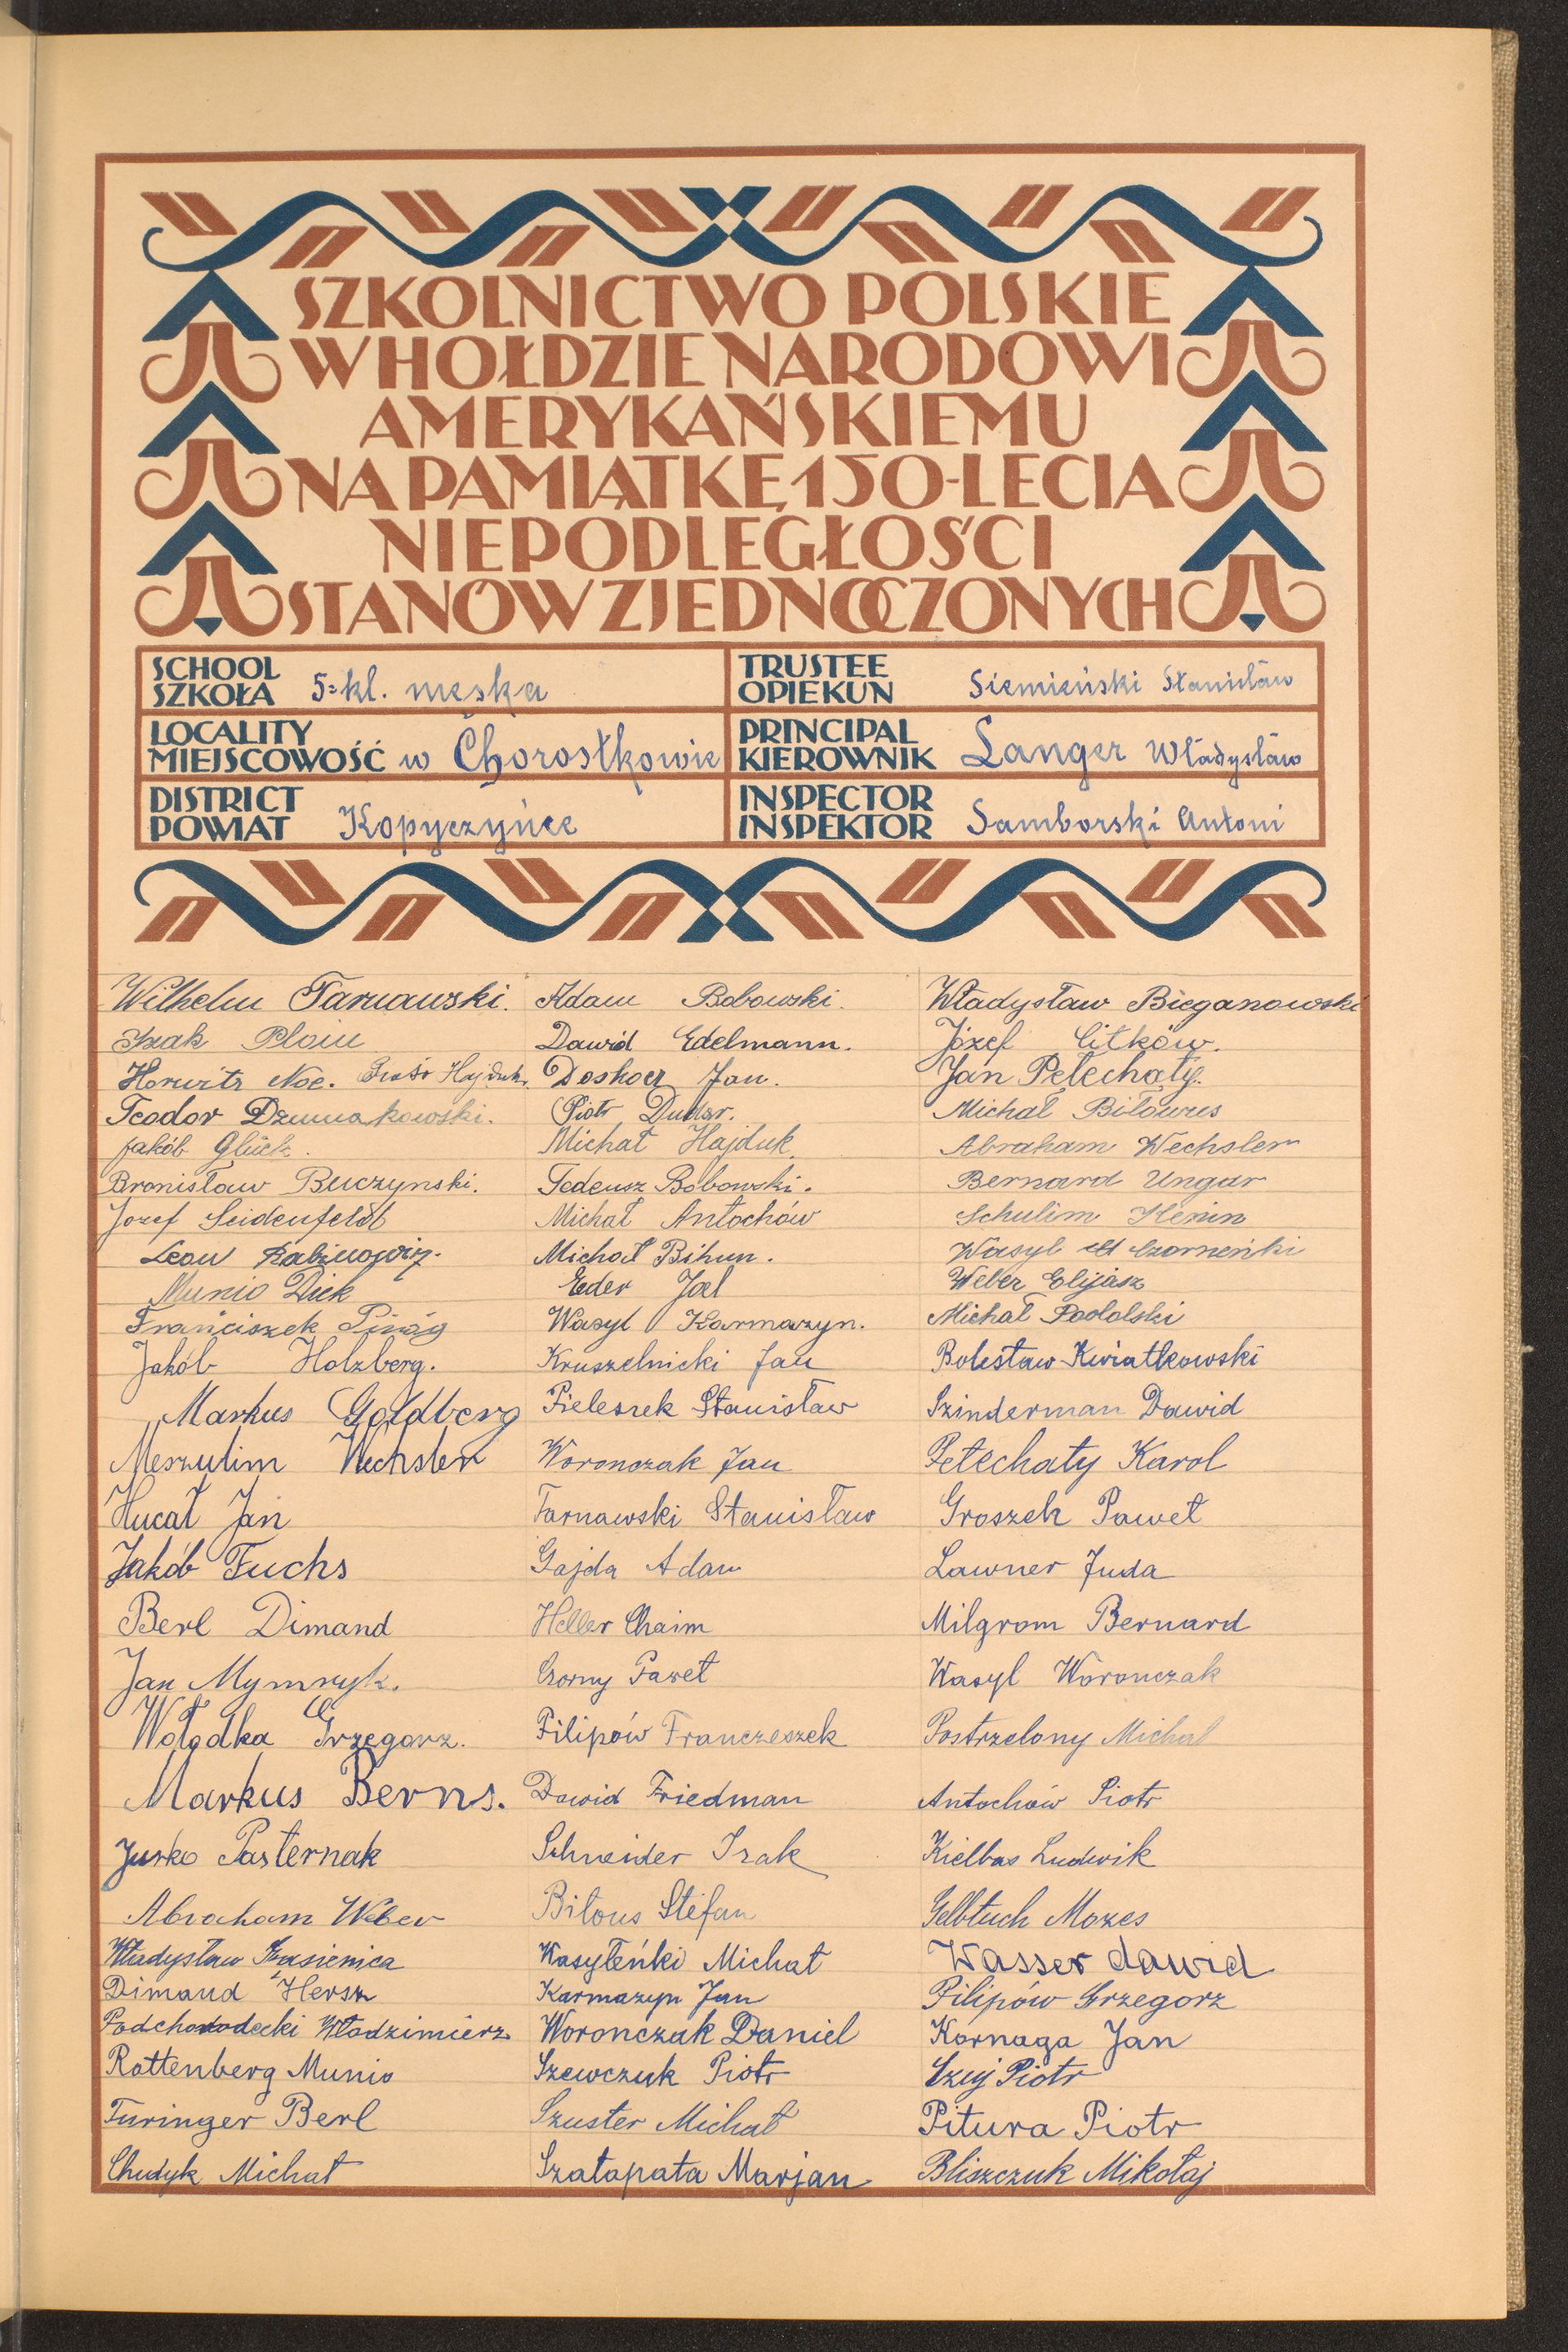 SZKOLNICTWO POLSKIE
W HOŁDZIE NARODOWI
AMERYKAŃSKIEMU
NA PAMIĄTKĘ 150-LECIA
NIEPODLEGŁOŚCI
STANÓW ZJEDNOCZONYCH
SCHOOL
SZKOŁA 5-kl. męska
TRUSTEE
OPIEKUN Siemieński Stanisław
LOCALITY
MIEJSCOWOŚĆ w Chorostkowie
PRINCIPAL
KIEROWNIK Langer Władysław
DISTRICT
POWIAT Kopyczyńce
INSPECTOR
INSPEKTOR Samborski Antoni
Wilhelm Tarnawski.
Izak
Horwitz Noe. Hajduk.
Teodor
Jakób Glück.
Bronisław Buczynski.
Jozef Seidenfeld
Leon Rabinowicz.
Munio Dick
Franciszek Piróg
Jakób Holzberg.
Markus Goldberg
Meszulim Wechsler
Hucał Jan
Jakób Fuchs
Berl Dimand
Jan Mymryk.
Wołodka Grzegorz.
Markus Berns.
Jurko Pasternak
Abraham Weber
Władysław
Dimand Hersz
Podchorodecki Włodzimierz
Rottenberg Munio
Turinger Berl
Chudyk Michał
Adam Bobowski.
Dawid Edelmann.
Doskocz Jan.
Piotr Dudar.
Michał Hajduk.
Tedeusz Bobowski.
Michał Antochów
Michał Bihun.
Eder Joel
Wasyl Karmazyn.
Kruszelnicki Jan
Pieleszek Stanisław
Woronczak Jan
Tarnawski Stanisław
Gajda Adam
Heller Chaim
Czorny Paweł
Filipów Franczeszek
Dawid Friedman
Schneider Izak
Biłous Stefan
Wasyleńki Michał
Karmazyn Jan
Woronczak Daniel
Szewczuk Piotr
Szuster Michał
Szałapata Marjan
Władysław Bieganowski
Józef Citków.
Jan Pełechaty.
Michał Biłowus
Abraham Wechsler
Bernard Ungar
Schulim
Wasyl
Weber Elijasz
Michał Podolski
Bolesław Kwiatkowski
Szinderman Dawid
Pełechaty Karol
Groszek Paweł
Lawner Juda
Milgrom Bernard
Wasyl Woronczak
Postrzelony Michał
Antochów Piotr
Kiełbas Ludwik
Gelbtuch Mozes
Wasser dawid
Filipów Grzegorz
Kornaga Jan
Piotr
Pitura Piotr
Bliszczuk Mikołaj